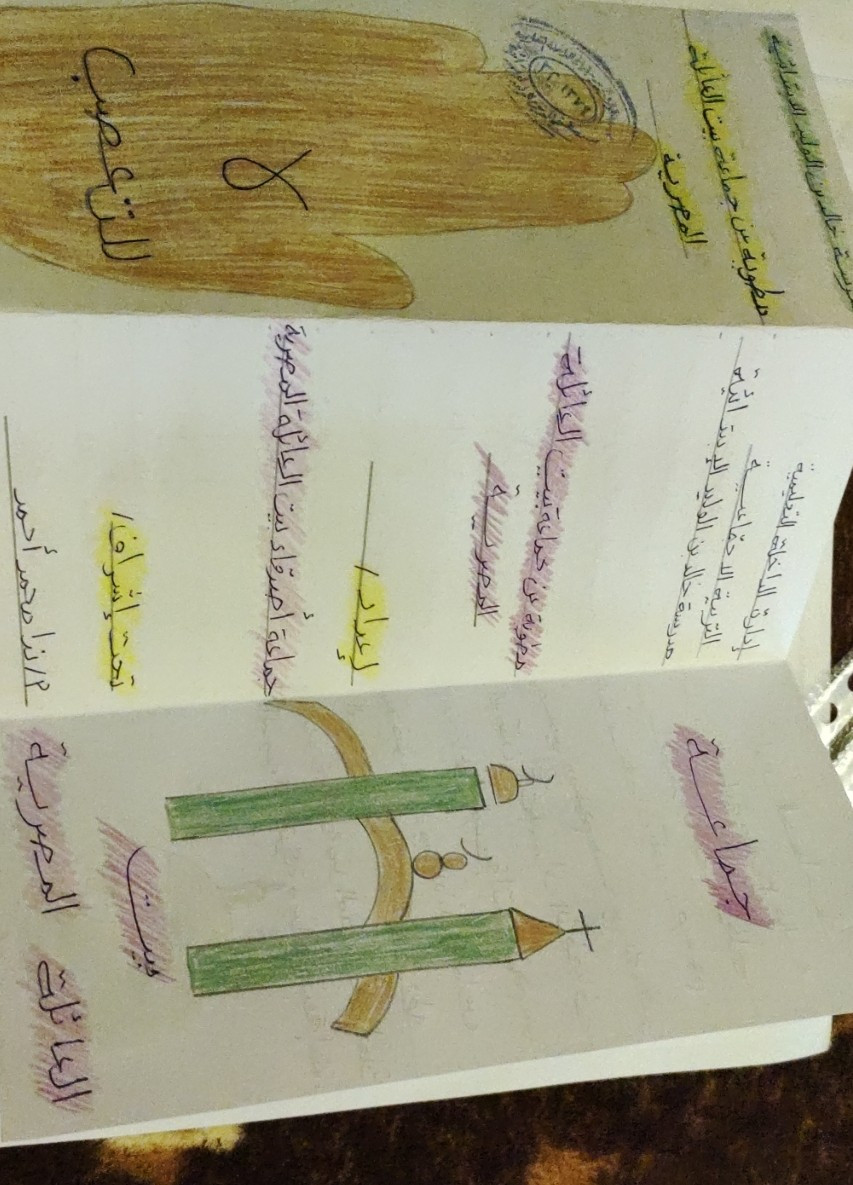 جماعة
بيت
العائلة المصرية
إدارة الداخلة التعليمية
التربية الاجتماعية
مدرسة خالد بن الوليد الإبتدائية
مطوية عن جماعة بيت العائلة
المصرية
إعداد/
جماعة أصدقاء بيت العائلة المصرية
تحت إشراف/
أ/ندا محمد أحمد
مدرسة خالد بن الوليد الابتدائية
مطوية عن جماعة بيت العائلة
المصرية
لا
للتعصب